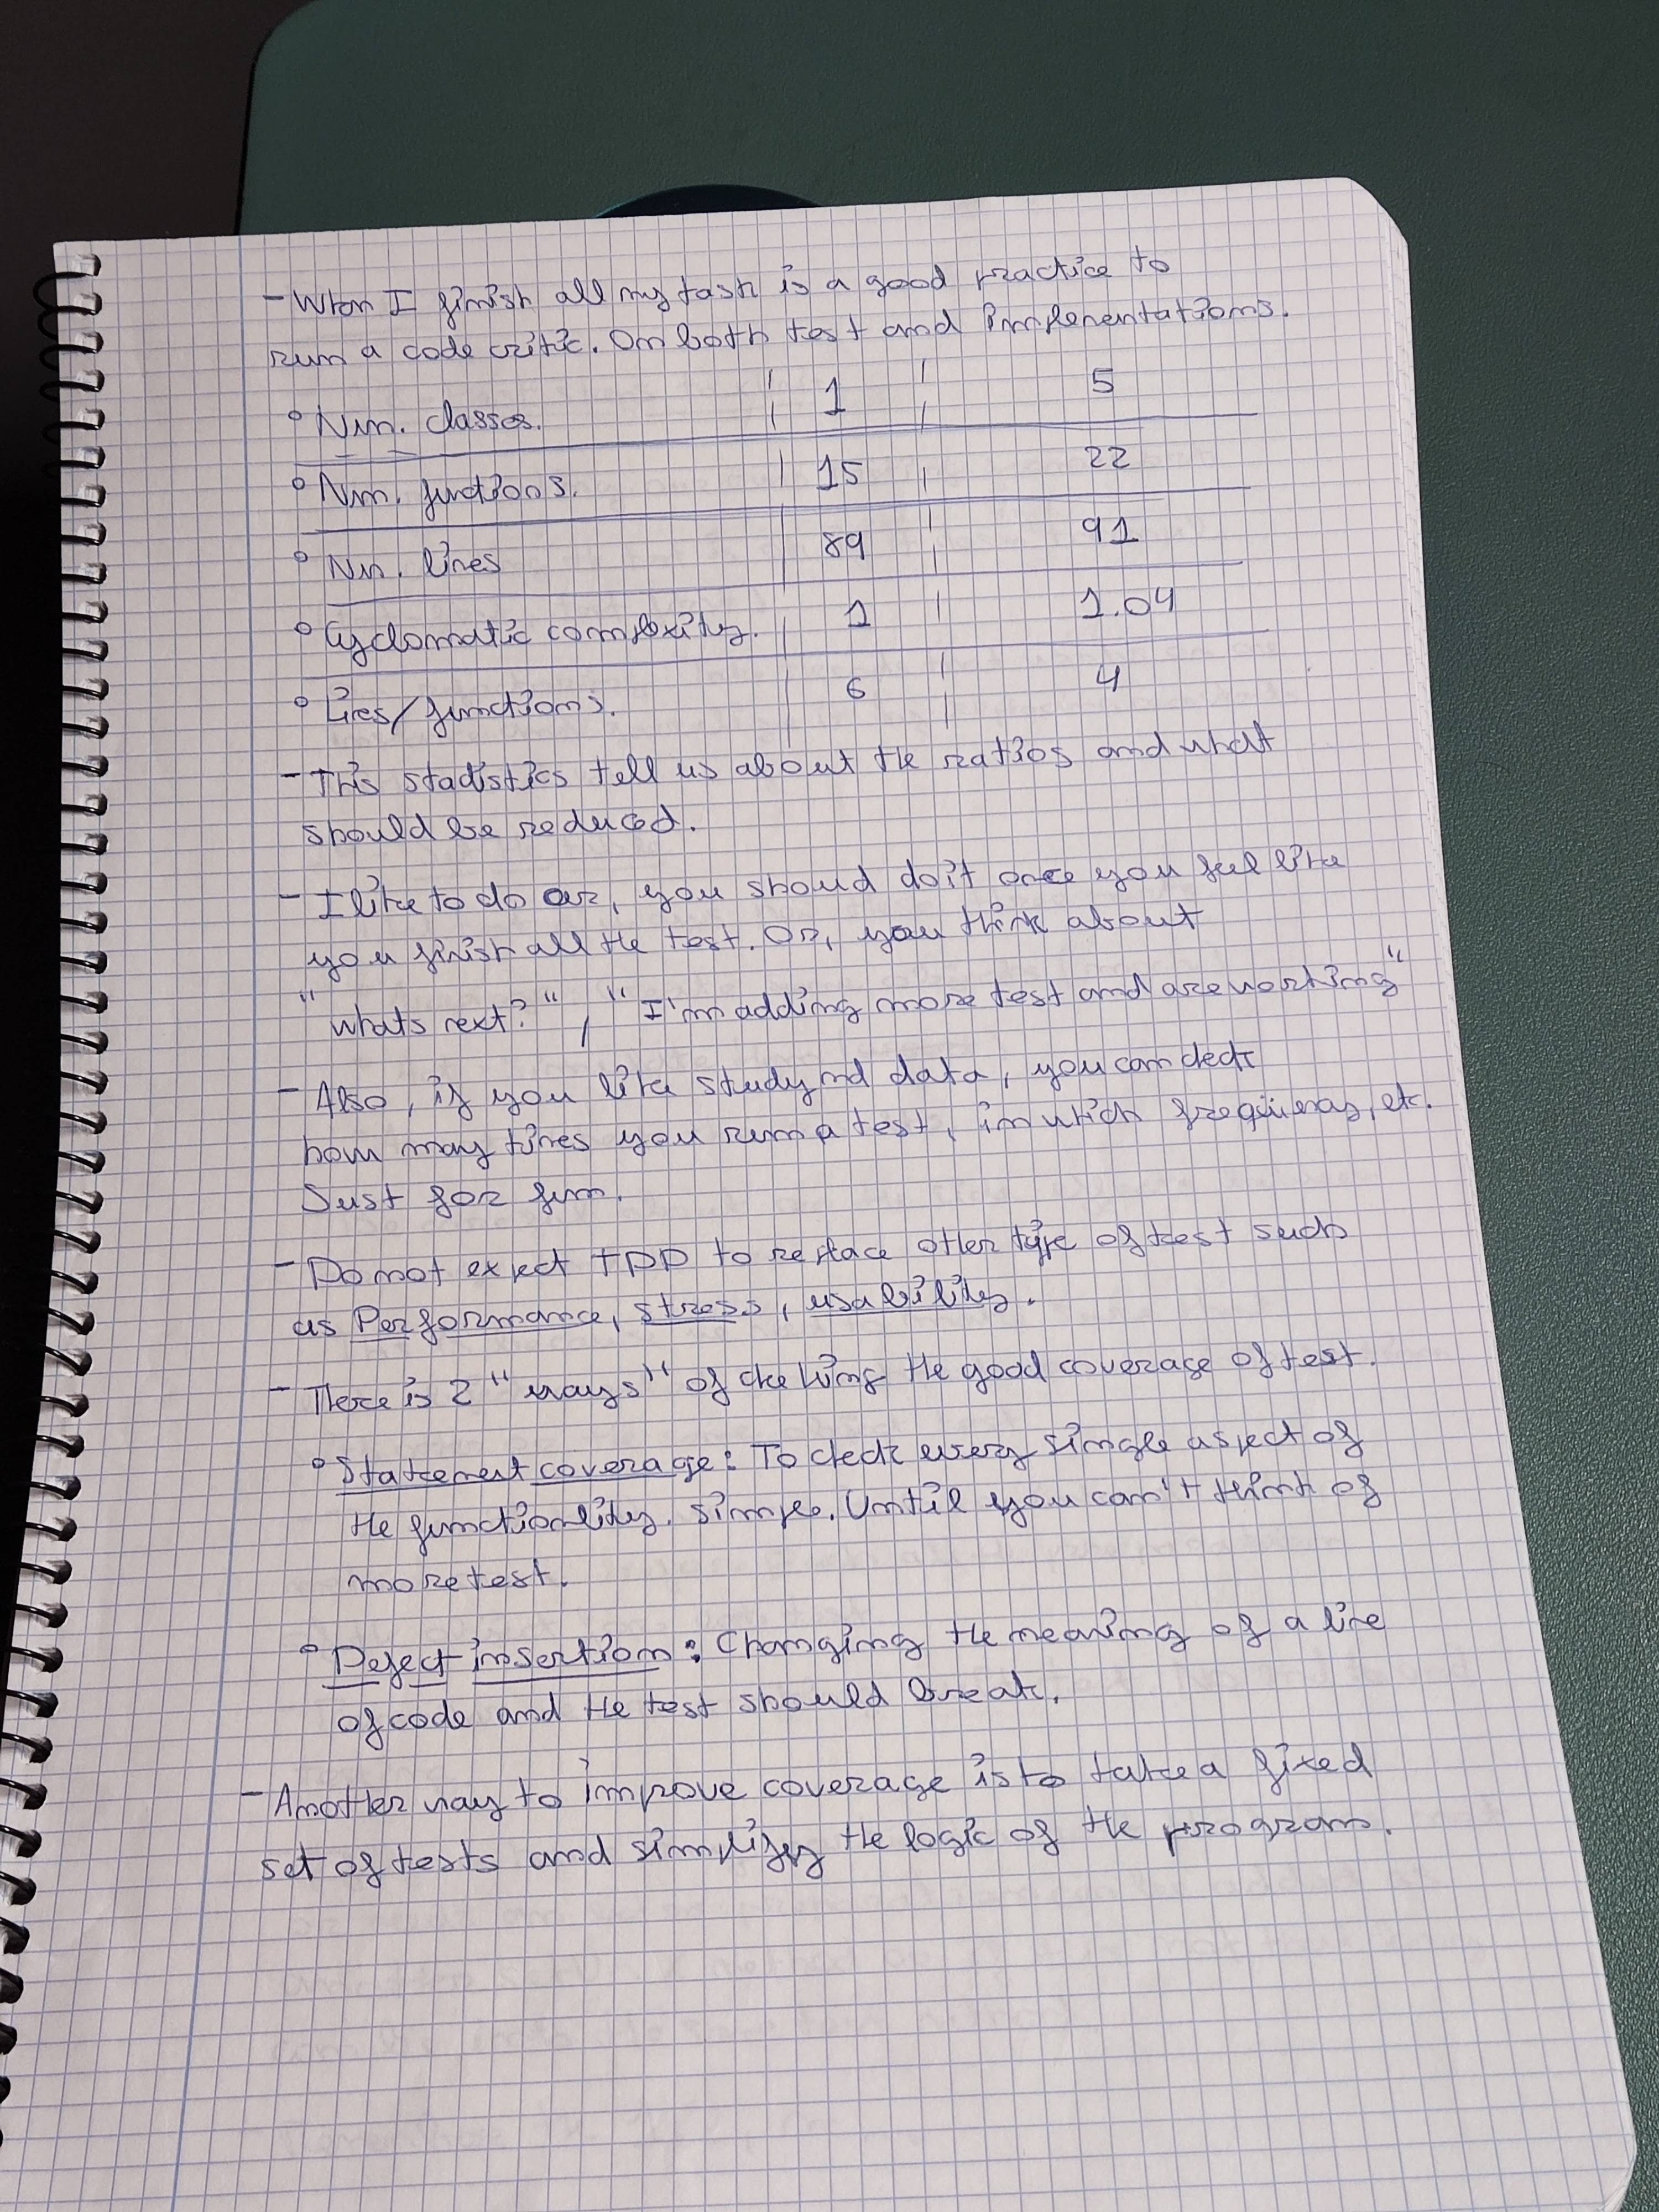 - When I finish all my task is a good practice to
run a code critic. On both test and implementations.
° Num. classes. | 1 | 5
° Num. functions. | 15 | 22
° Num. lines | 89 | 91
° Cyclomatic complexity. | 1 | 1.04
° Lines/functions. | 6 | 4
- This stadistics tell us about the ratios and what
should be reduced.
- I like to do or, you shoud do it once you feel like
you finish all the test. Or, you think about
"whats next?", "I'm adding more test and are working"
- Also, if you like study and data, you can check
how many times you run a test, in which freqüency, etc.
Just for fun.
- Do not expect TDD to replace other type of test such
as Performance, stress, usability.
- There is 2 "ways" of checking the good coverage of test.
° Statement coverage: To check every single aspect of
the functionality. simple. Until you can't think of
more test.
° Defect insertion: Changing the meaning of a line
of code and the test should break.
- Another way to improve coverage is to take a fixed
set of tests and simplify the logic of the program.